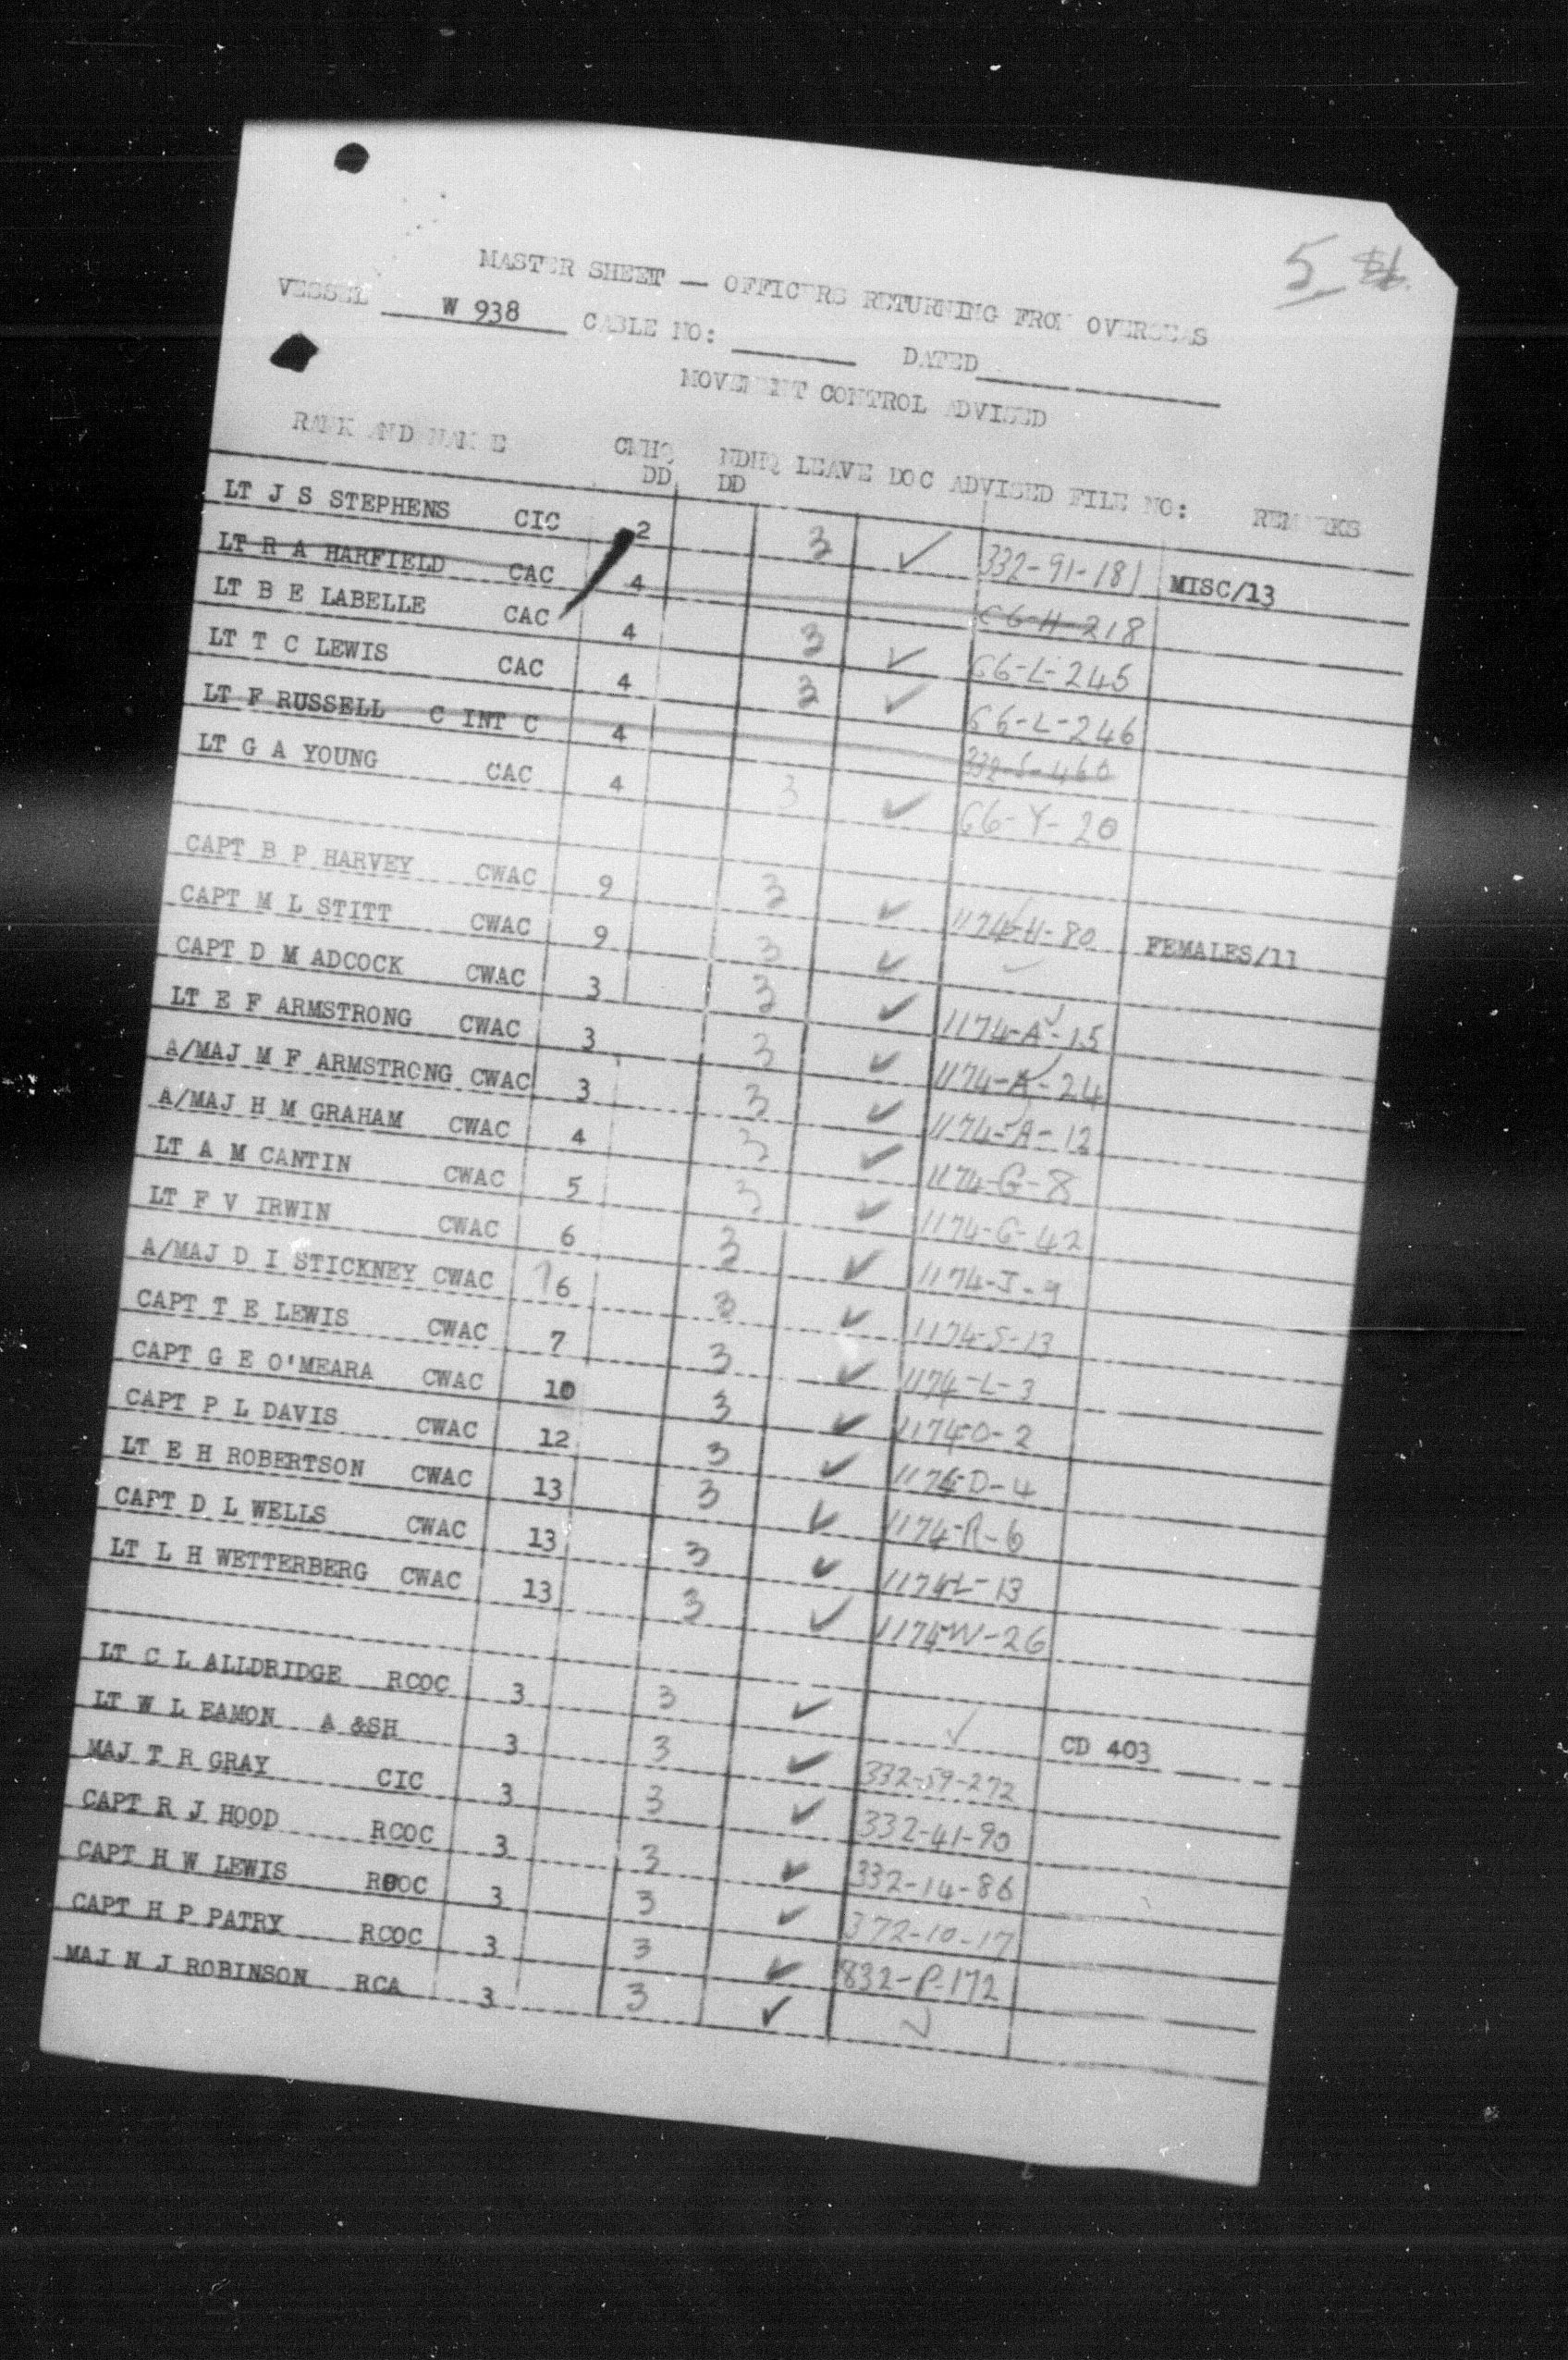 5
MASTER SHEET — OFFICERS RETURNING FROM OVERSEAS
VESSEL W 938 CABLE NO: DATED
MOVEMENT CONTROL ADVISED
RANK AND NAME CMHQ DD NDHQ DD LEAVE DOC ADVISED FILE NO: REMARKS
LT J S STEPHENS CIC 2 3 ✓ 332-91-181 MISC/13
LT R A HARFIELD CAC 4 C6-H-218
LT B E LABELLE CAC 4 3 ✓ C6-L-245
LT T C LEWIS CAC 4 3 ✓ C6-L-246
LT F RUSSELL C INT C 4 332-S-460
LT G A YOUNG CAC 4 3 ✓ C6-Y-20
CAPT B P HARVEY CWAC 9 3 ✓ 1174-H-80 FEMALES/11
CAPT M L STITT CWAC 9 3 ✓ ✓
CAPT D M ADCOCK CWAC 3 3 ✓ 1174-A-15
LT E F ARMSTRONG CWAC 3 3 ✓ 1174-A-24
A/MAJ M F ARMSTRONG CWAC 3 3 ✓ 1174-A-12
A/MAJ H M GRAHAM CWAC 4 3 ✓ 1174-G-8
LT A M CANTIN CWAC 5 3 ✓ 1174-C-42
LT F V IRWIN CWAC 6 3 ✓ 1174-I-9
A/MAJ D I STICKNEY CWAC 6 3 ✓ 1174-S-13
CAPT T E LEWIS CWAC 7 3 ✓ 1174-L-3
CAPT G E O'MEARA CWAC 10 3 ✓ 1174-O-2
CAPT P L DAVIS CWAC 12 3 ✓ 1174-D-4
LT E H ROBERTSON CWAC 13 3 ✓ 1174-R-6
CAPT D L WELLS CWAC 13 3 ✓ 1174-L-13
LT L H WETTERBERG CWAC 13 3 ✓ 1174-W-26
LT C L ALLDRIDGE RCOC 3 3 ✓ ✓ CD 403
LT W L EAMON A &SH 3 3 ✓ 332-59-272
MAJ T R GRAY CIC 3 3 ✓ 332-41-90
CAPT R J HOOD RCOC 3 3 ✓ 332-14-86
CAPT H W LEWIS RCOC 3 3 ✓ 372-10-17
CAPT H P PATRY RCOC 3 3 ✓ 832-P-172
MAJ N J ROBINSON RCA 3 3 ✓ ✓